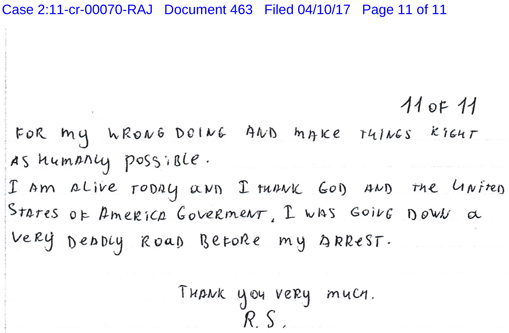 Case 2:11-cr-00070-RAJ Document 463 Filed 04/10/17 Page 11 of 11
11 OF 11
FOR my WRONG DOING AND mAKE THINGS RIGHT
AS HumANLY possible.
I Am ALIVE TODAY AND I THANK GOD AND THE UNITED
STATES OF AMERICA GOVERMENT, I WAS GOING DOWN a
VERY DEADLY ROAD BEFORE my ARREST.
THANK you VERY much.
R. S.